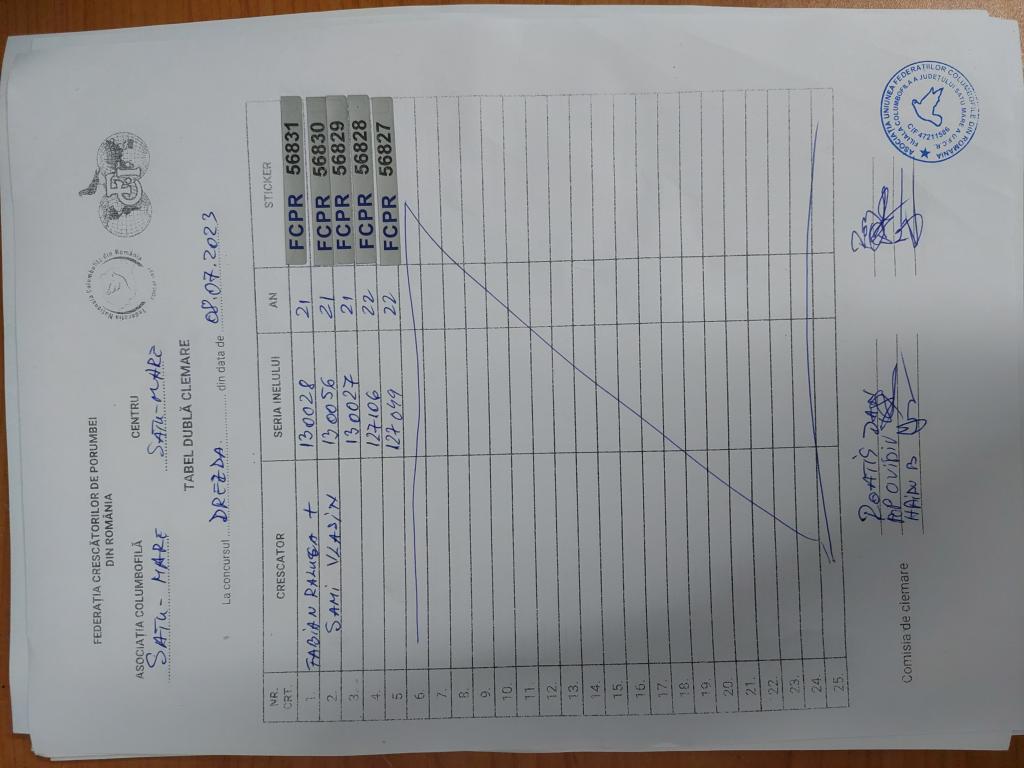 FEDERAȚIA CRESCĂTORILOR DE PORUMBEI
DIN ROMÂNIA
Federația Națională Columbofilă din România
ASOCIAȚIA COLUMBOFILĂ CENTRU
SATU - MARE SATU-MARE
TABEL DUBLĂ CLEMARE
La concursul DREZDA din data de 08.07.2023
NR. CRT. CRESCATOR SERIA INELULUI AN STICKER
1. FABIAN RALUCA + 130028 21 FCPR 56831
2. SAMI VLASIN 130056 21 FCPR 56830
3. 130027 21 FCPR 56829
4. 127106 22 FCPR 56828
5 127049 22 FCPR 56827
6.
7.
8.
9.
10.
11.
12.
13.
14.
15.
16.
17.
18.
19.
20.
21.
22.
23.
24.
25.
Comisia de clemare
DAN
POP OVIDIU
ASOCIAȚIA UNIUNEA FEDERAȚIILOR COLUMBOFILE DIN ROMANIA
FILIALA COLUMBOFILA A JUDETULUI SATU MARE A U.F.C.R.
CIF 47211586